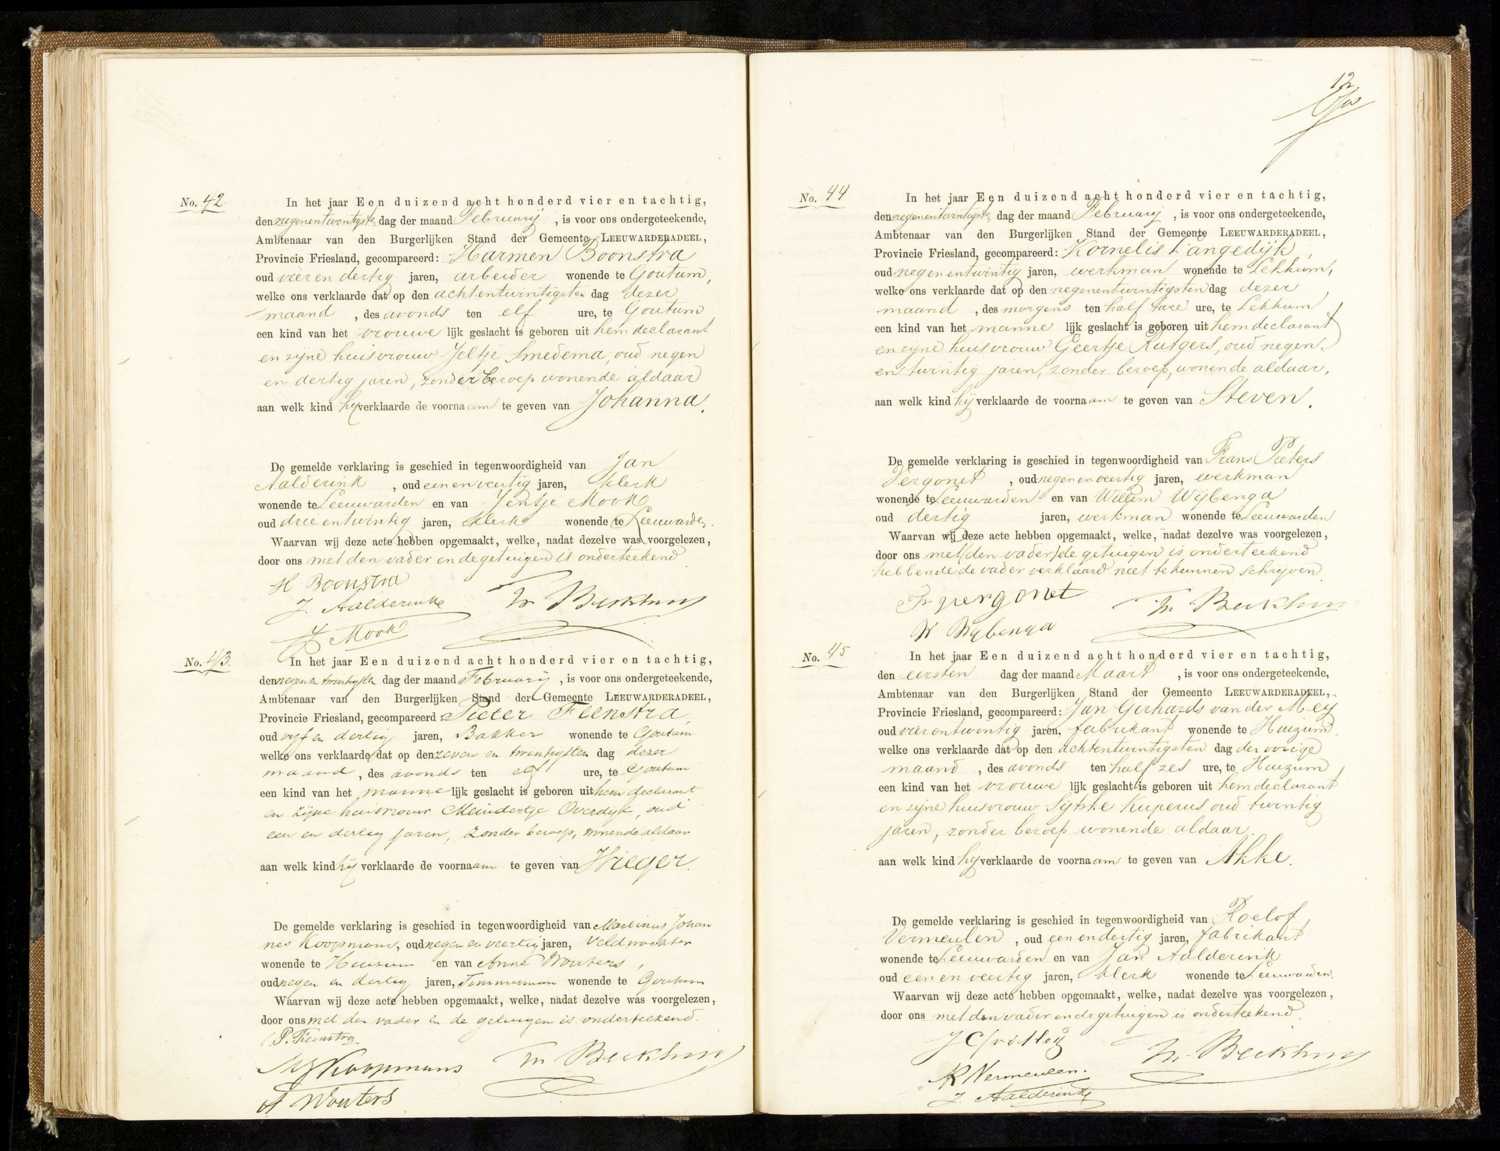 No. 42
In het jaar Een duizend acht honderd vier en tachtig,
den negenentwintigste dag der maand February, is voor ons ondergeteekende,
Ambtenaar van den Burgerlijken Stand der Gemeente LEEUWARDERADEEL,
Provincie Friesland, gecompareerd: Harmen Boonstra
oud vier en dertig jaren, arbeider wonende te Goutum,
welke ons verklaarde dat op den achtentwintigsten dag dezer
maand, des avonds ten elf ure, te Goutum
een kind van het vrouwelijk geslacht is geboren uit hem declarant
en zyne huisvrouw Jeltje Smedema, oud negen
en dertig jaren, zonder beroep wonende aldaar
aan welk kind hij verklaarde de voornaam te geven van Johanna.
De gemelde verklaring is geschied in tegenwoordigheid van Jan
Aalderink, oud een en veertig jaren, klerk
wonende te Leeuwarden en van Jentje Mook
oud drie en twintig jaren, klerk wonende te Leeuwarden.
Waarvan wij deze acte hebben opgemaakt, welke, nadat dezelve was voorgelezen,
door ons met den vader en de getuigen is onderteekend
H Boonstra
J. Aalderink
J Mook
No. 43
In het jaar Een duizend acht honderd vier en tachtig,
den negen en twintigsten dag der maand February, is voor ons ondergeteekende,
Ambtenaar van den Burgerlijken Stand der Gemeente LEEUWARDERADEEL,
Provincie Friesland, gecompareerd Pieter Feenstra,
oud vyf en dertig jaren, Bakker wonende te Goutum
welke ons verklaarde dat op den zeven en twintigsten dag dezer
maand, des avonds ten elf ure, te Goutum
een kind van het mannelijk geslacht is geboren uit hem declarant
en zijne huisvrouw Meindertje Overdyk, oud
een en dertig jaren, zonder beroep, wonende aldaar
aan welk kind hij verklaarde de voornaam te geven van Hieger.
De gemelde verklaring is geschied in tegenwoordigheid van Martinus Johan
nes Koopmans, oud negen en veertig jaren, Veldwachter
wonende te Huizum en van Anne Wouters,
oud negen en dertig jaren, Timmerman wonende te Goutum
Waarvan wij deze acte hebben opgemaakt, welke, nadat dezelve was voorgelezen,
door ons met den vader en de getuigen is onderteekend.
P. Feenstra
MJ Koopmans
A Wouters
12
No. 44
In het jaar Een duizend acht honderd vier en tachtig,
den negenentwintigste dag der maand February, is voor ons ondergeteekende,
Ambtenaar van den Burgerlijken Stand der Gemeente LEEUWARDERADEEL,
Provincie Friesland, gecompareerd: Kornelis Langedijk,
oud negen en twintig jaren, werkman wonende te Lekkum,
welke ons verklaarde dat op den negenentwintigsten dag dezer
maand, des morgens ten half twee ure, te Lekkum
een kind van het mannelijk geslacht is geboren uit hem declarant
en zyne huisvrouw Geertje Rutgers, oud negen
en twintig jaren, zonder beroep, wonende aldaar,
aan welk kind hij verklaarde de voornaam te geven van Steven.
De gemelde verklaring is geschied in tegenwoordigheid van Frans Pieters
Pergonet, oud negen en veertig jaren, werkman
wonende te Leeuwarden en van Willem Wybenga
oud dertig jaren, werkman wonende te Leeuwarden
Waarvan wij deze acte hebben opgemaakt, welke, nadat dezelve was voorgelezen,
door ons met den vader de getuigen is onderteekend
hebbende de vader verklaard niet te kunnen schrijven.
Fr pergonet
W Wybenga
No. 45
In het jaar Een duizend acht honderd vier en tachtig,
den eersten dag der maand Maart, is voor ons ondergeteekende,
Ambtenaar van den Burgerlijken Stand der Gemeente LEEUWARDERADEEL,
Provincie Friesland, gecompareerd: Jan Gerhards van der Mey
oud vierentwintig jaren, fabrikant wonende te Huizum
welke ons verklaarde dat op den achtentwintigsten dag der vorige
maand, des avonds ten half zes ure, te Huizum
een kind van het vrouwelijk geslacht is geboren uit hem declarant
en zyne huisvrouw Sybke Kuperus oud twintig
jaren, zonder beroep wonende aldaar.
aan welk kind hij verklaarde de voornaam te geven van Akke.
De gemelde verklaring is geschied in tegenwoordigheid van Roelof
Vermeulen, oud een en dertig jaren, fabrikant
wonende te Leeuwarden en van Jan Aalderink
oud een en veertig jaren, klerk wonende te Leeuwarden
Waarvan wij deze acte hebben opgemaakt, welke, nadat dezelve was voorgelezen,
door ons met den vader en de getuigen is onderteekend.
R Vermeulen.
J. Aalderink